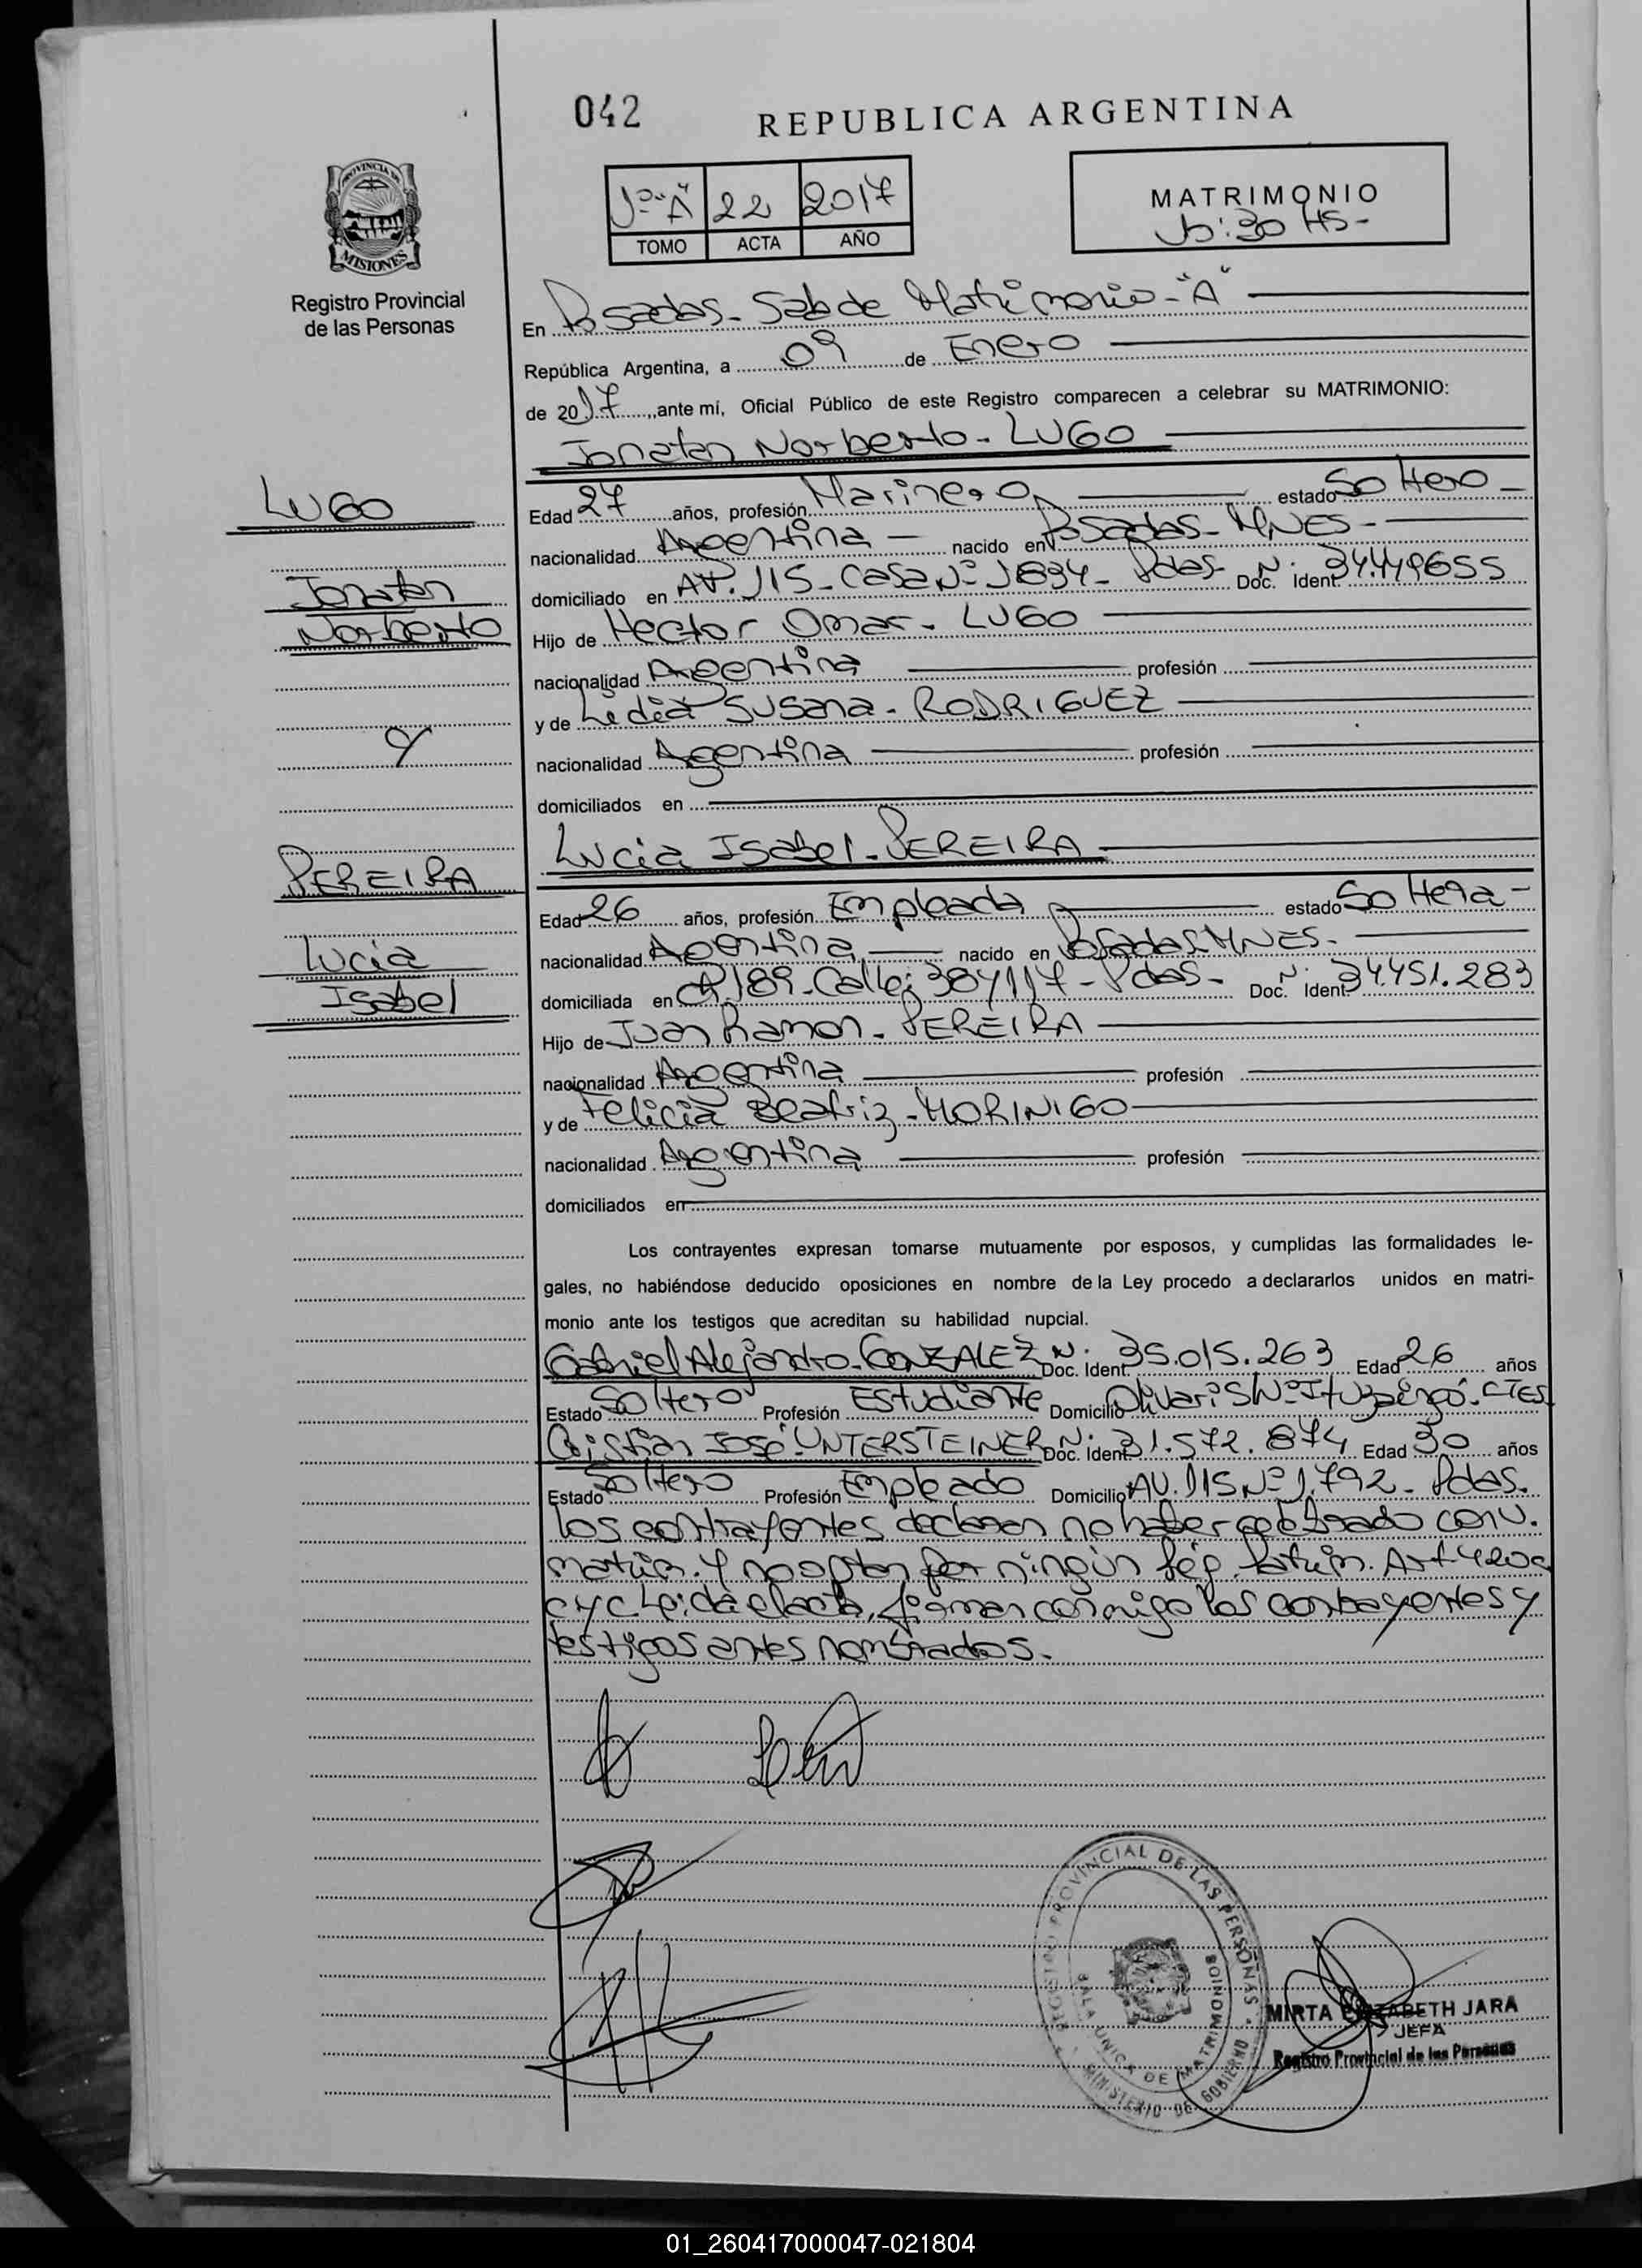 042
REPUBLICA ARGENTINA
1º "A" 22 2017
TOMO ACTA AÑO
MATRIMONIO
:30 HS-
PROVINCIA DE
MISIONES
Registro Provincial
de las Personas
En Posadas- Sala de Matrimonio-"A"
República Argentina, a 09 de Enero
de 2017, ante mí, Oficial Público de este Registro comparecen a celebrar su MATRIMONIO:
Jonatan Norberto- LUGO
LUGO
Jonatan
Norberto
Edad 27 años, profesión Marinero estado Soltero-
nacionalidad Argentina- nacido en Posadas- MNES-
domiciliado en AV. 115- Casa Nº 1834- Pdas- Doc. Ident. Nº: 34.449655
Hijo de Hector Omar- LUGO
nacionalidad Argentina profesión
y de Lidia Susana- RODRIGUEZ
y
nacionalidad Argentina profesión
domiciliados en
Lucia Isabel- PEREIRA
PEREIRA
Lucia
Isabel
Edad 26 años, profesión Empleada estado Soltera-
nacionalidad Argentina- nacido en Posadas MNES-
domiciliada en Ch 189- Calle: 3847117- Pdas- Doc. Ident. Nº: 34.451.283
Hijo de Juan Ramon- PEREIRA
nacionalidad Argentina profesión
y de Felicia Beatriz- MORINIGO
nacionalidad Argentina profesión
domiciliados en
Los contrayentes expresan tomarse mutuamente por esposos, y cumplidas las formalidades le-
gales, no habiéndose deducido oposiciones en nombre de la Ley procedo a declararlos unidos en matri-
monio ante los testigos que acreditan su habilidad nupcial.
Gabriel Alejandro- GONZALEZ Doc. Ident. Nº: 35.015.263 Edad 26 años
Estado Soltero Profesión Estudiante Domicilio Olivari S/Nº Ituzaingó- CTES
Cristian José UNTERSTEINER Doc. Ident. Nº: 31.572.874 Edad 30 años
Estado Soltero Profesión Empleado Domicilio AV. 115 Nº 1.792- Pdas.
los contrayentes declaran no haber celebrado conv.
matrim. y no optan por ningún rég. patrim. Art 420
CYC Leída el acta, firman conmigo los contrayentes y
testigos antes nombrados.
REGISTRO PROVINCIAL DE LAS PERSONAS
SALA UNICA DE MATRIMONIOS
MINISTERIO DE GOBIERNO
MIRTA ELIZABETH JARA
JEFA
Registro Provincial de las Personas
01_260417000047-021804